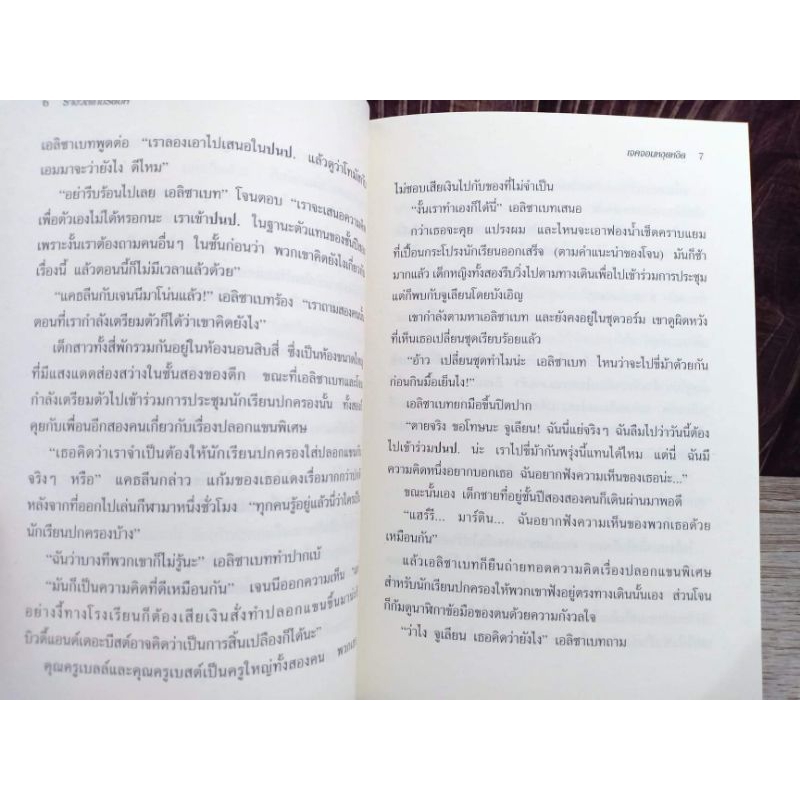 6
เอลิซาเบทพูดต่อ “เราลองเอาไปเสนอในปนป. แล้วดูว่าโทมัส
เอมมาจะว่ายังไง ดีไหม”
“อย่ารีบร้อนไปเลย เอลิซาเบท” โจนตอบ “เราจะเสนอความ
เพื่อตัวเองไม่ได้หรอกนะ เราเข้าปนป. ในฐานะตัวแทนของชั้นปี
เพราะงั้นเราต้องถามคนอื่นๆ ในชั้นก่อนว่า พวกเขาคิดยังไงเกี่ยว
เรื่องนี้ แล้วตอนนี้ก็ไม่มีเวลาแล้วด้วย”
“แคธลีนกับเจนนีมาโน่นแล้ว!” เอลิซาเบทร้อง “เราถามสองคน
ตอนที่เรากำลังเตรียมตัวก็ได้ว่าเขาคิดยังไง”
เด็กสาวทั้งสี่พักรวมกันอยู่ในห้องนอนสิบสี่ ซึ่งเป็นห้องขนาด
ที่มีแสงแดดส่องสว่างในชั้นสองของตึก ขณะที่เอลิซาเบทและ
กำลังเตรียมตัวไปเข้าร่วมการประชุมนักเรียนปกครองนั้น ทั้งสอง
คุยกับเพื่อนอีกสองคนเกี่ยวกับเรื่องปลอกแขนพิเศษ
“เธอคิดว่าเราจำเป็นต้องให้นักเรียนปกครองใส่ปลอกแขน
จริงๆ หรือ” แคธลีนกล่าว แก้มของเธอแดงเรื่อมากกว่า
หลังจากที่ออกไปเล่นกีฬามาหนึ่งชั่วโมง “ทุกคนรู้อยู่แล้วนี่ว่าใคร
นักเรียนปกครองบ้าง”
“ฉันว่าบางทีพวกเขาก็ไม่รู้นะ” เอลิซาเบททำปากเบ้
“มันก็เป็นความคิดที่ดีเหมือนกัน” เจนนีออกความเห็น
อย่างงี้ทางโรงเรียนก็ต้องเสียเงินสั่งทำปลอกแขนขึ้นมา
บิวตี้แอนด์เดอะบีสต์อาจคิดว่าเป็นการสิ้นเปลืองก็ได้นะ”
คุณครูเบลล์และคุณครูเบสต์เป็นครูใหญ่ทั้งสองคน
เจคจอมหงุดหงิด 7
ไม่ชอบเสียเงินไปกับของที่ไม่จำเป็น
“งั้นเราทำเองก็ได้นี่” เอลิซาเบทเสนอ
กว่าเธอจะคุย แปรงผม และไหนจะเอาฟองน้ำเช็ดคราบแยม
ที่เปื้อนกระโปรงนักเรียนออกเสร็จ (ตามคำแนะนำของโจน) มันก็ช้า
มากแล้ว เด็กหญิงทั้งสองรีบวิ่งไปตามทางเดินเพื่อไปเข้าร่วมการประชุม
แต่ก็พบกับจูเลียนโดยบังเอิญ
เขากำลังตามหาเอลิซาเบท และยังคงอยู่ในชุดวอร์ม เขาดูผิดหวัง
ที่เห็นเธอเปลี่ยนชุดเรียบร้อยแล้ว
“อ้าว เปลี่ยนชุดทำไมน่ะ เอลิซาเบท ไหนว่าจะไปขี่ม้าด้วยกัน
ก่อนกินมื้อเย็นไง!”
เอลิซาเบทยกมือขึ้นปิดปาก
“ตายจริง ขอโทษนะ จูเลียน! ฉันนี่แย่จริงๆ ฉันลืมไปว่าวันนี้ต้อง
ไปเข้าร่วมปนป. น่ะ เราไปขี่ม้ากันพรุ่งนี้แทนได้ไหม แต่นี่ ฉันมี
ความคิดหนึ่งอยากบอกเธอ ฉันอยากฟังความเห็นของเธอน่ะ...”
ขณะนั้นเอง เด็กชายที่อยู่ชั้นปีสองสองคนก็เดินผ่านมาพอดี
“แฮร์รี... มาร์ติน... ฉันอยากฟังความเห็นของพวกเธอด้วย
เหมือนกัน”
แล้วเอลิซาเบทก็ยืนถ่ายทอดความคิดเรื่องปลอกแขนพิเศษ
สำหรับนักเรียนปกครองให้พวกเขาฟังอยู่ตรงทางเดินนั้นเอง ส่วนโจน
ก็ก้มดูนาฬิกาข้อมือของตนด้วยความกังวลใจ
“ว่าไง จูเลียน เธอคิดว่ายังไง” เอลิซาเบทถาม